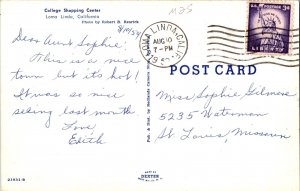 College Shopping Center
Loma Linda, California
Photo by Robert B. Rearick
8/9/59
Dear Aunt Sophie:
This is a nice
town but its hot!
It was so nice
seeing last month
Love,
Edith
21932-B
LOMA LINDA, CALIF.
AUG 10
7-PM
U.S. POSTAGE
3¢
LIBERTY
POST CARD
Miss Sophie Gilmore
5235 Waterman
St Louis, Missouri
MADE BY
DEXTER